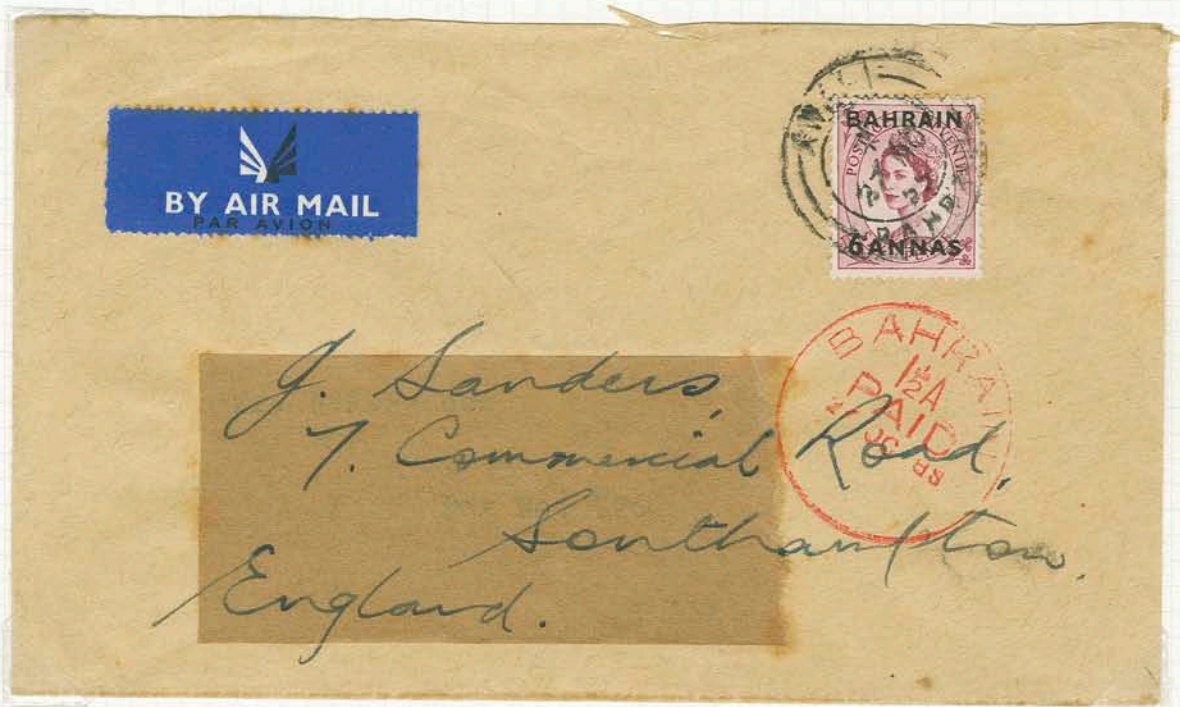 BY AIR MAIL
PAR AVION
AWALI
BAHRAIN
POSTAGE REVENUE
6 ANNAS
BAHRAIN
1½A
PAID
J. Sanders,
7. Commercial Road,
Southampton.
England.